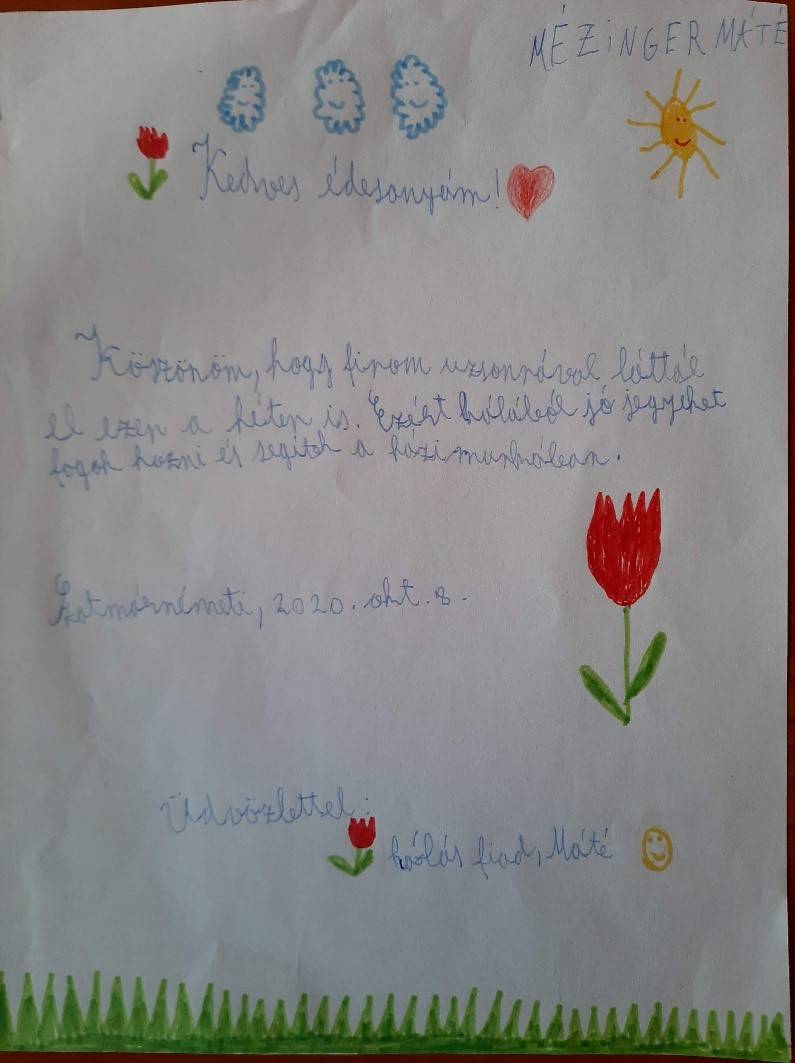 MÉZINGER MÁTÉ
Kedves édesanyám!
Köszönöm, hogy finom uzsonnával láttál
el ezen a héten is. Ezért hálából jó jegyeket
fogok hozni és segítek a házimunkában.
Szatmárnémeti, 2020. okt. 8.
Üdvözlettel:
hálás fiad, Máté